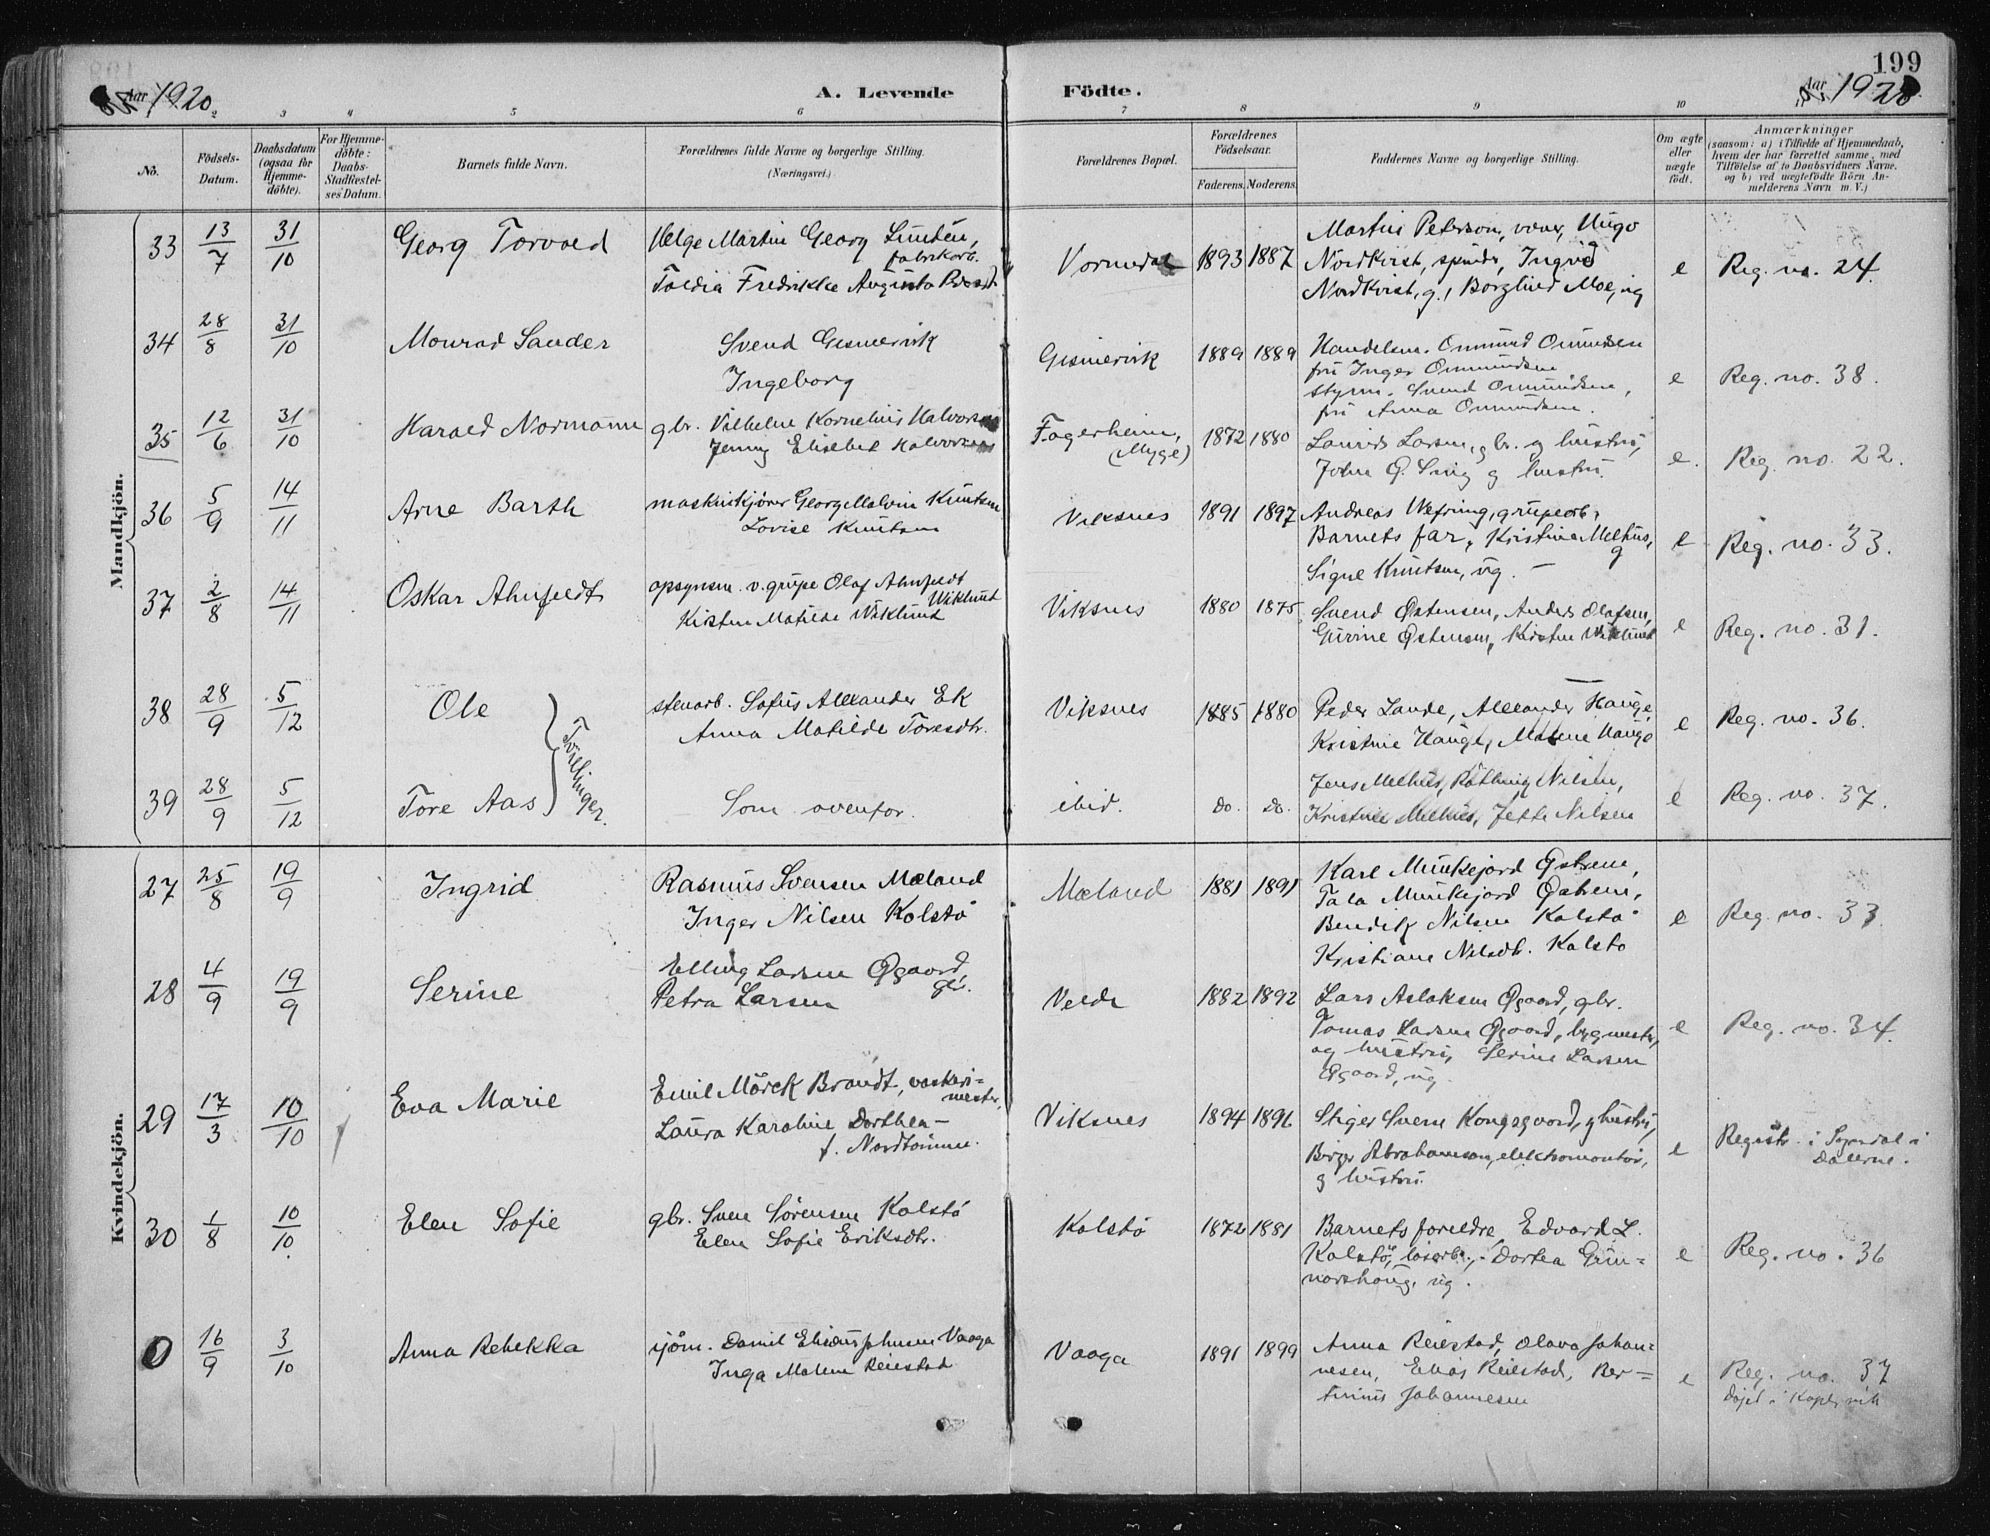 199
Aar 1920.
A. Levende
Födte.
Aar 1920
2 3 4 5 6 7 8 9 10
No.
Födsels-Datum.
Daabsdatum (ogsaa för Hjemme-döbte).
For Hjemme-döbte: Daabs-Stadfæstel-ses Datum.
Barnets fulde Navn.
Forældrenes fulde Navne og borgerlige Stilling.
(Næringsvei.)
Forældrenes Bopæl.
Forældrenes Födselsaar.
Faderens. Moderens.
Faddernes Navne og borgerlige Stilling.
Om ægte eller uægte födt.
Anmærkninger
(saasom: a) i Tilfælde af Hjemmedaab, hvem der har forrettet samme, med Tilföielse af to Daabsvidners Navne, og b) ved uægtefödte Börn An-melderens Navn m. V.)
Mandkjön.
33 13/7 31/10 Georg Torvald
Helge Martin Georg Lindén,
fabrikarb.
Toldia Fredrikke Augusta
Vormedal 1893 1887
Martin Peterson, væver, Hugo
Nordkvist, spinder, Ingrid
Nordkvist, g., Borghild Moe, ug
e Reg. no. 24.
34 28/8 31/10 Monrad Sander
Svend Gismervik
Ingeborg
Gismervik 1889 1889
Handelsm. Ommund Ommundsen
fru Inger Ommundsen
styrm. Svend Ommundsen,
fru Anna Ommundsen.
e Reg. no. 38.
35 12/6 31/10 Harald Normann
gbr. Vilhelm Kornelius Halvorsen
Jenny Elisabet Halvorsen
Fagerheim,
(Myge)
1872 1880
Laurits Larsen, gbr. og hustru,
John G. Snig og hustru.
e. Reg. no. 22.
36 5/9 14/11 Arne Barth
maskinkjører Georg Malvin Knutsen
Lovise Knutsen
Viksnes 1891 1897
Andreas Wefring, grubearb.
Barnets far, Kristine Melhus, g
Signe Knutsen, ug. —
e Reg. no. 33.
37 2/8 14/11 Oskar Ahnfeldt
opsynsm. v. grube Olaf Ahnfeldt
Wiklund
Kirsten Matilde Wiklund
Viksnes 1880 1875
Svend Østensen, Anders Olafsen,
Gurine Østensen, Kirsten Wiklund
e Reg. no. 31.
38 28/9 5/12 Ole
Tvillinger.
stenarb. Sofus Alexander Ek
Anna Matilde Toresdtr.
Viksnes 1885 1880
Peder Lande, Alexander Hauge,
Kristine Hauge, Malene Hauge
e Reg. no. 36.
39 28/9 5/12 Tore Aas
Som ovenfor.
ibid. do. do.
Jens Melhus, Nilsen,
Kristine Melhus, Jette Nilsen
e Reg. no. 37.
Kvindekjön.
27 25/8 19/9 Ingrid
Rasmus Svensen Mæland
Inger Nilsen Kolstö
Mæland 1881 1891
Karl Munkejord Østrem,
Tala Munkejord Østrem,
Bendik Nilsen Kolstö
Kristiane Nilsdt. Kolstø
e Reg. no. 33.
28 4/9 19/9 Serine
Elling Larsen Øgaard,
gbr.
Petra Larsen
Velde 1882 1892
Lars Aslaksen Øgaard, gbr.
Tomas Larsen Øgaard, bygmester,
og hustru, Serine Larsen
Øgaard, ug.
e Reg. no. 34.
29 17/3 10/10 Eva Marie
Emil Mörck Brandt, vaskeri-
mester,
Laura Karoline Dorthea—
f. Nordtömme.
Viksnes 1894 1896
Stiger Svern Kongsgaard, g hustru,
Birger Abrahamsen, elektromontör,
g hustru.
e Registr. i Sogndal i
Dalerne.
30 1/8 10/10 Elen Sofie
gbr. Sven Sørensen Kolstö
Elen Sofie Eriksdtr.
Kolstö 1872 1881
Barnets foreldre Edvard L.
Kolstö, løsarb., Dortea Gun=
narshaug, ug.
e Reg. no. 36
0 16/9 3/10 Anna Rebekka
sjøm. Daniel Elieser Johnsen Vaaga
Inga Malene Reiestad
Vaaga 1891 1899
Anna Reiestad, Olava Johan=
nesen, Elias Reiestad, Ber=
tinius Johannesen
e Reg. no. 37
Døpt i Kopervik